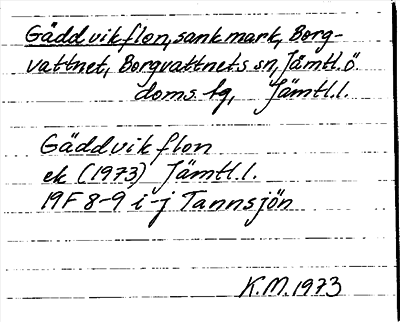 Gäddvikflon, sank mark, Borg-
vattnet, Borgvattnets sn, Jämtl. ö.
doms. fg, Jämtl. l.
Gäddvikflon
ek (1973) Jämtl. l.
19F 8-9 i-j Tannsjön
K.M. 1973